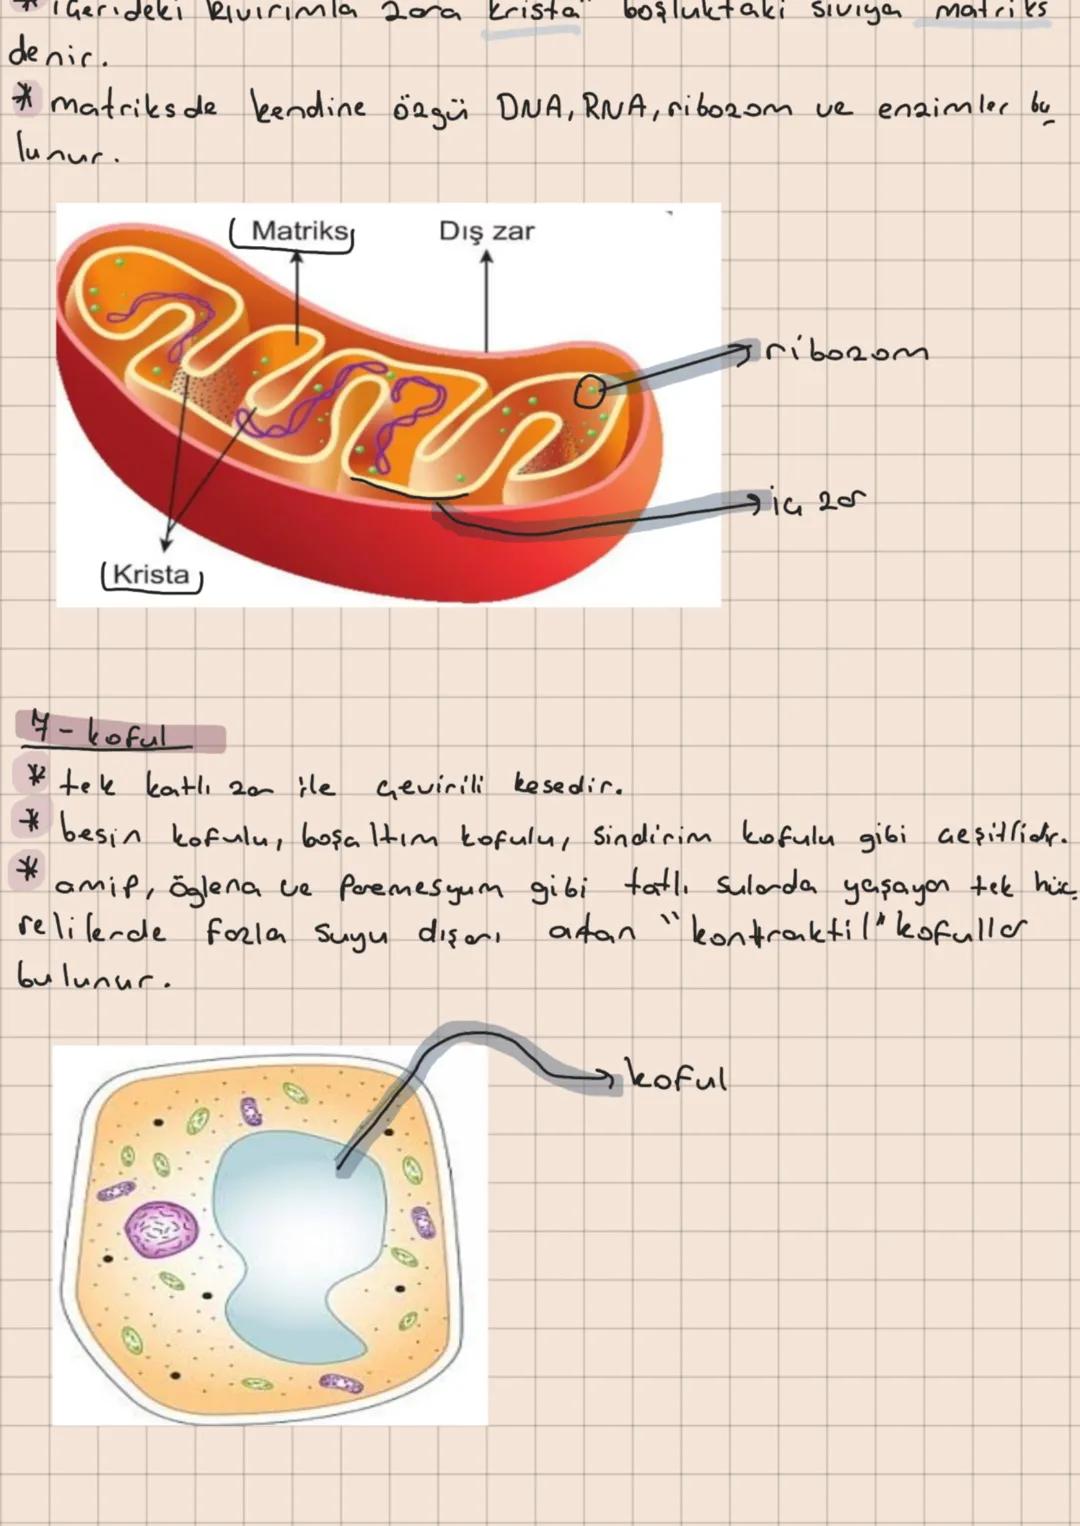 * içerideki kıvırımla zara "krista" boşluktaki sıvıya matriks
denir.
* matriksde kendine özgü DNA, RNA, ribozom ve enzimler bu
lunur.
Matriks
Dış zar
ribozom
iç zar
Krista
7- koful
* tek katlı zar ile çevirili kesedir.
* besin kofulu, boşaltım kofulu, sindirim kofulu gibi çeşitlidir.
* amip, öglena ve paremesyum gibi tatlı sularda yaşayan tek hüc
relilerde fazla suyu dışarı atan "kontraktil" kofullar
bulunur.
koful